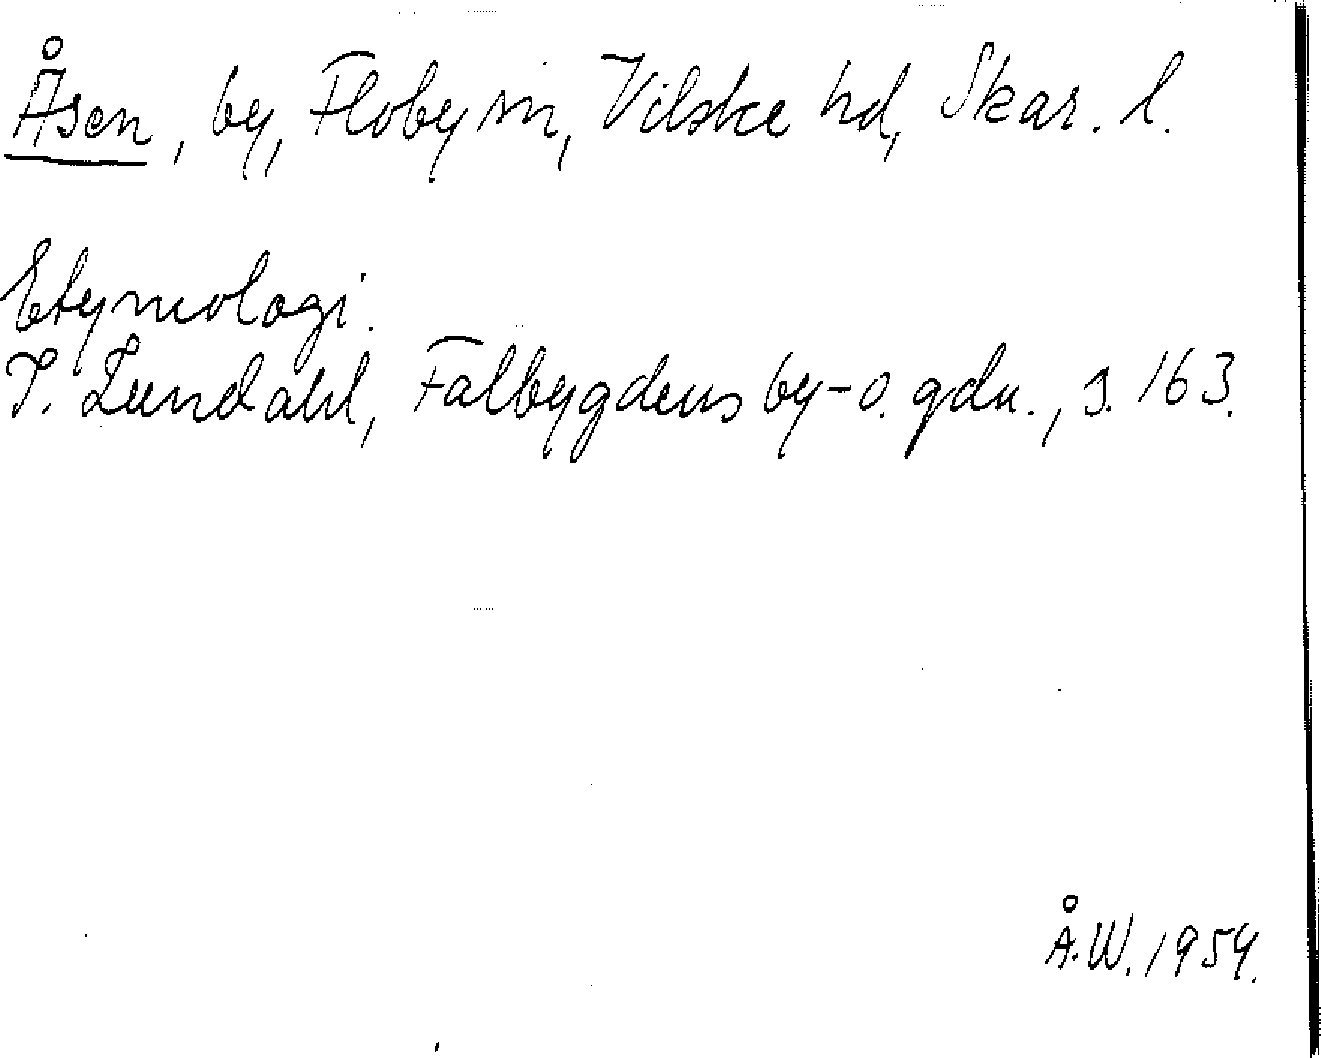 Åsen, by, Floby sn, Vilske hd, Skar. l.
Etymologi.
I. Lundahl, Falbygdens by- o. gdn., s. 163.
Å.W. 1954.